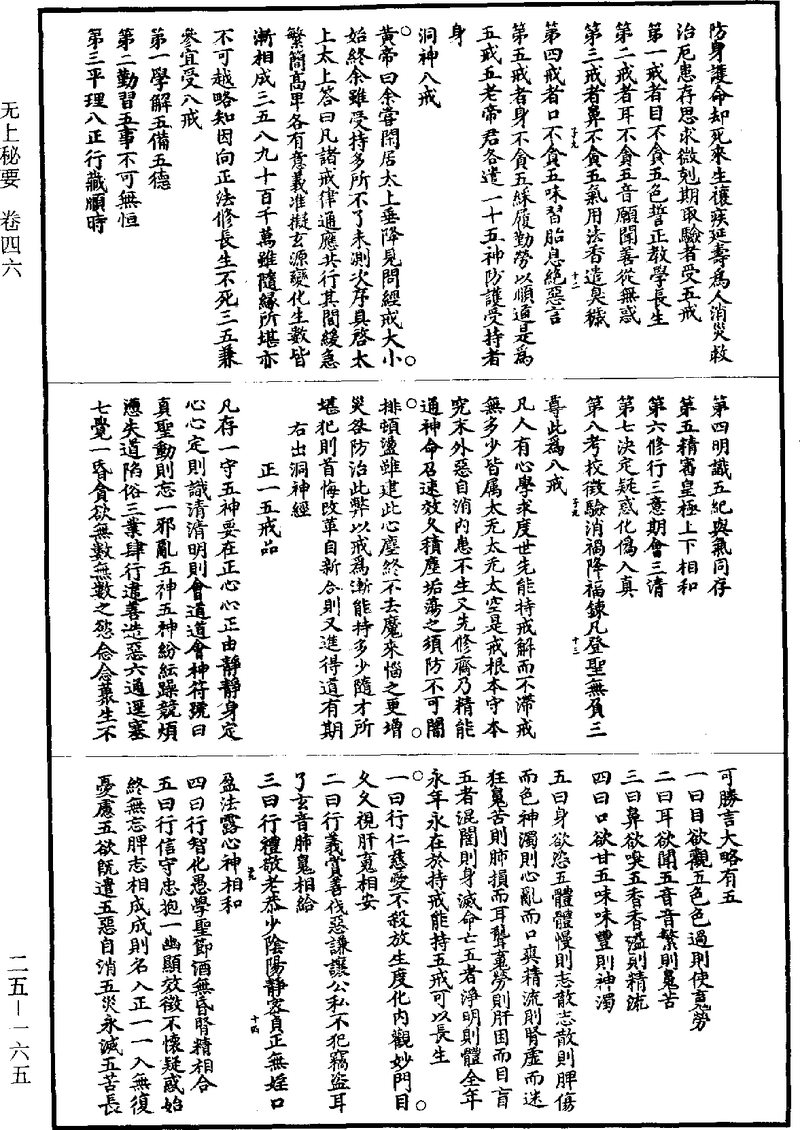 防身護命却死來生禳疾延壽為人消災救
治厄患存思求微剋期取驗者受五戒
第一戒者目不貪五色誓正教學長生
第二戒者耳不貪五音願聞善從無惑
第三戒者鼻不貪五氣用法香遣臭穢
第四戒者口不貪五味習胎息絶惡言
第五戒者身不貪五綵履勤勞以順道是為
五戒五老帝君各遣一十五神防護受持者
身
洞神八戒
黃帝曰余嘗閑居太上垂降見問經戒大小
始終余雖受持多所不了未測次序具啓太
上太上答曰凡諸戒律通應共行其間緩急
繁簡高卑各有意義准擬玄源變化生數皆
漸相成三五八九十百千萬雖隨緣所堪亦
不可越略知因向正法修長生不死三五兼
參宜受八戒
第一學解五備五德
第二勤習五事不可無恒
第三平理八正行藏順時
第四明識五紀與氣同存
第五精審皇極上下相和
第六修行三意期會三清
第七決定疑惑化偽入真
第八考校徵驗消禍降福鍊凡登聖無負三
尊此為八戒
凡人有心學求度世先能持戒解而不滯戒
無多少皆屬太无太无太空是戒根本守本
究末外惡自消內患不生又先修齋乃精能
通神命召速效久積塵垢蕩之須防不可闇
排頓盪雖建此心塵終不去魔來惱之更增
災咎防治此弊以戒為漸能持多少隨才所
堪犯則首悔改革自新合則又進得道有期
右出洞神經
正一五戒品
凡存一守五神要在正心心正由靜靜身定
心心定則識清清明則會道道會神符號曰
真聖動則忘一邪亂五神五神紛紜躁競煩
懣失道陷俗三業肆行違善造惡六通運塞
七覺一昏貪欲無數無數之慾念念叢生不
可勝言大略有五
一曰目欲觀五色色過則使䰟勞
二曰耳欲聞五音音繁則䰟苦
三曰鼻欲嗅五香香溢則精流
四曰口欲甘五味味豐則神濁
五曰身欲恣五體體慢則志散志散則脾傷
而色神濁則心亂而口爽精流則腎虛而迷
狂䰟苦則肺損而耳聾䰟勞則肝困而目盲
五者混闇則身滅命亡五者淨明則體全年
永年永在於持戒能持五戒可以長生
一曰行仁慈愛不殺放生度化內觀妙門目
久久視肝䰟相安
二曰行義賞善伐惡謙讓公私不犯竊盜耳
了玄音肺䰟相給
三曰行禮敬老恭少陰陽靜密貞正無婬口
盈法露心神相和
四曰行智化愚學聖節酒無昏腎精相合
五曰行信守忠抱一幽顯效徵不懷疑惑始
終無忘脾志相成成則名入正一一入無復
憂慮五欲既遣五惡自消五災永滅五苦長
无上秘要 卷四六
二五—一六五